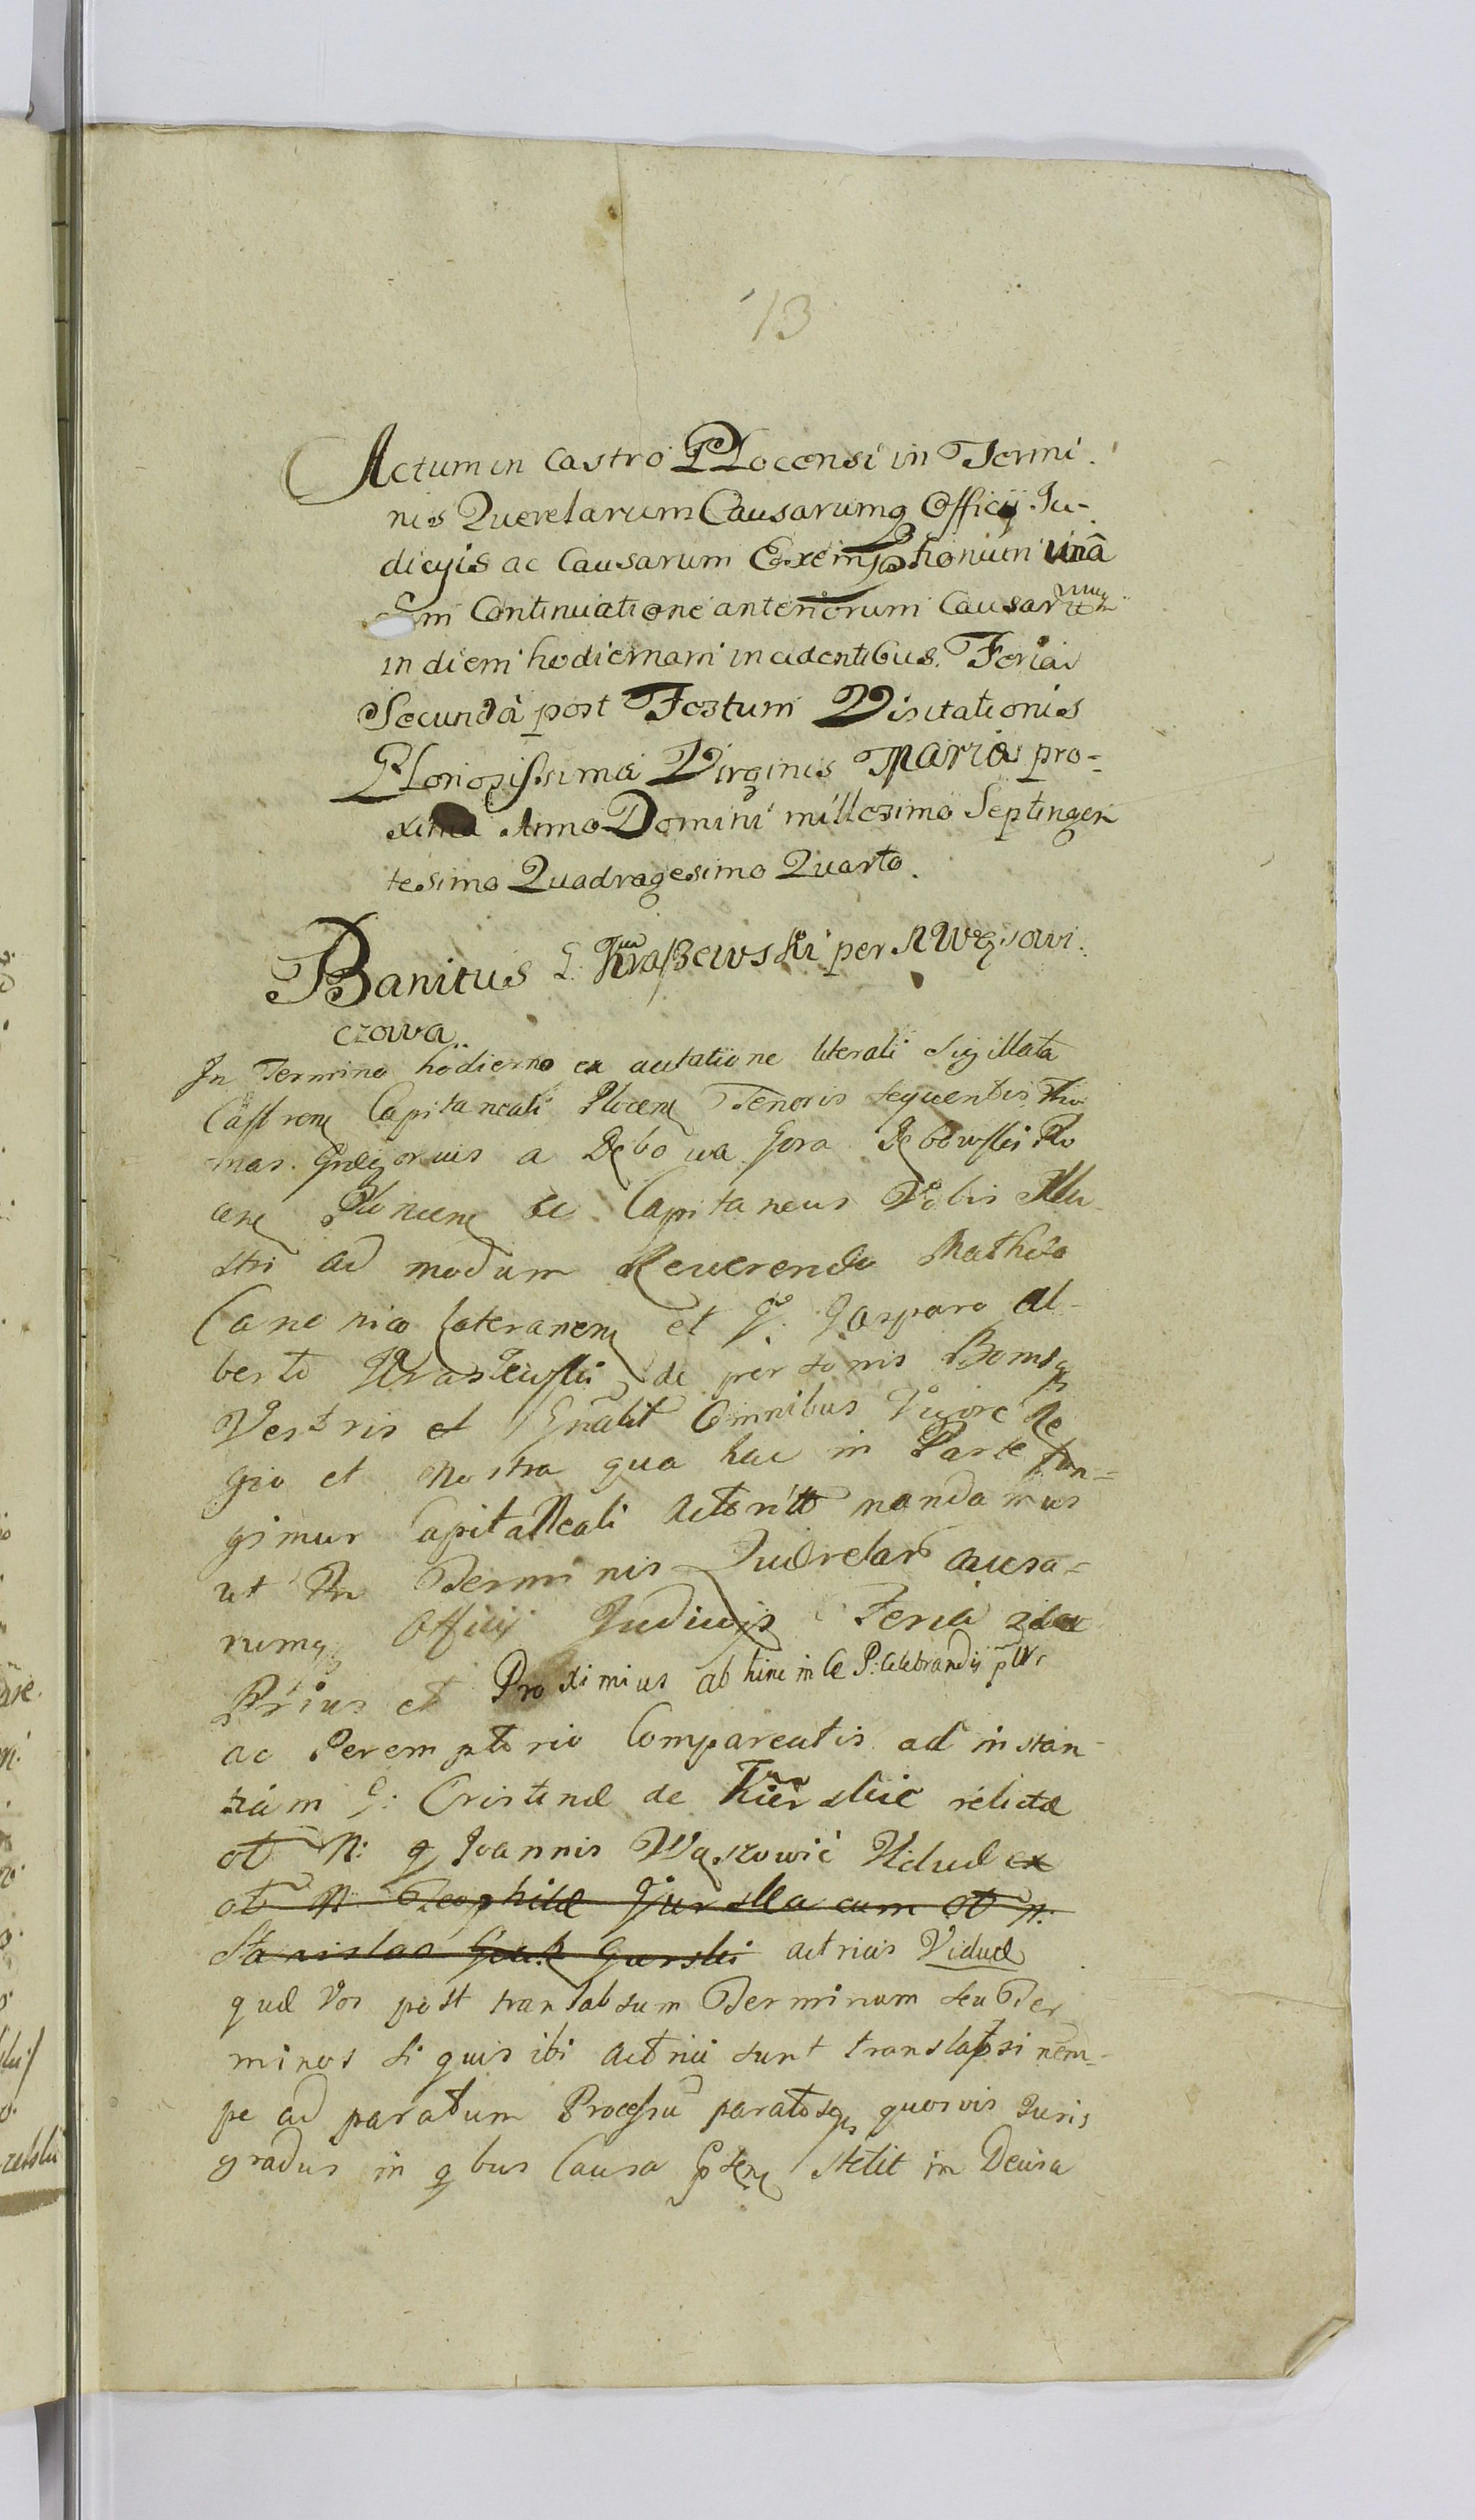 13
Actum in Castro Plocensi in Termi
nis Querelarum Causarumq Officij Ju-
dicyis ac Causarum Exemptionum unâ
Cum Continuatione anteriorum Causarum
in diem hodiernam incidentibus. Feria
Secundâ post Festum Visitationis
Gloriosissimæ Virginis Mariæ pro-
xima Anno Domini millesimo Septingen
tesimo Quadragesimo Quarto.
Banitus G. Kraszewski per
czowa.
In Termino hodierno ex citatione literali Sigillata
Castren Capitaneali Plocen Tenoris sequentis Tho
mas Gregorius a Debowa Gora Debowski Plo
cen Ploncen &c Capitaneus Vobis Illu
stri ad modum Reverendo Mathia
Canonico Lateranen et G. Gasparo Al-
berto Kraszewski de personis Bonisq
Vestris et Gnalit Omnibus Vigore Re
gio et Nostra qua hac in Parte fun-
gimur Capitaneali Acttoritte mandamus
ut in Terminis Querelar Causa-
rumq Officij Judicijs Feria 2da
Prius et Proximius ab hinc in C P: celebrandis
ac Peremptorie Compareatis ad instan-
tiam G: Cristinæ de relictæ
ot N: q Joannis Wąszowic Viduæ ex
ot N Teophilæ Gurska cum ot N:
Stanislao Gurski actricis Viduæ
quæ Vos post translabsum Terminum seu Ter
minos si quis ibi actricii sunt translapsi nem-
pe ad paratum Processu paratosq quosvis Juris
gradus in qbus Causa pden stetit in Decisa